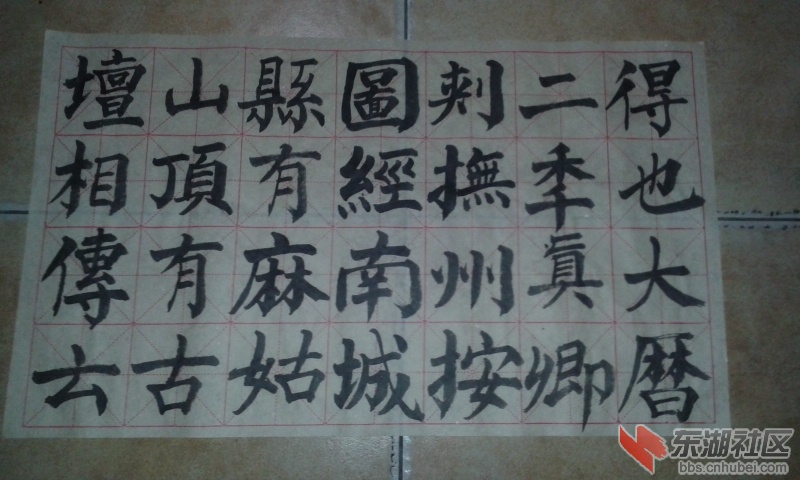 得也大暦
二季真卿
刺撫州按
圖經南城
縣有麻姑
山頂有古
壇相傳云
东湖社区
bbs.cnhubei.com